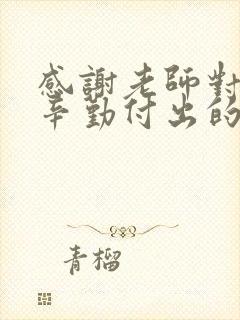 感謝老師對
辛勤付出的
青榴